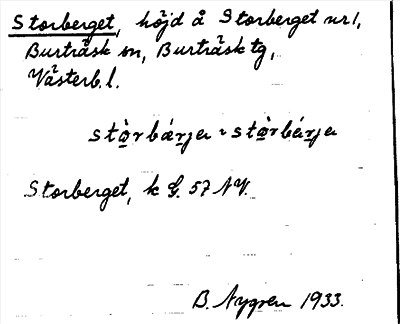 Storberget, höjd å Storberget nr 1,
Burträsk sn, Burträsk tg,
Västerb. l.
stòrbárja ~ stòrbárja
Storberget, k G. 57 NV.
B. Nygren 1933.